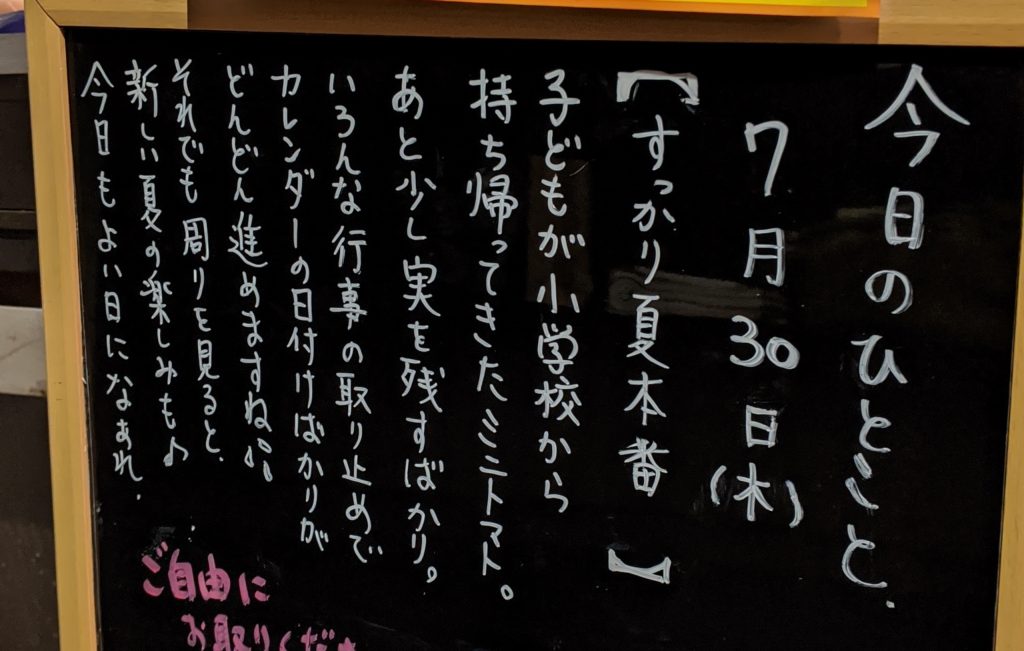 今日のひとこと.
7月30日(木)
【すっかり夏本番】
子どもが小学校から
持ち帰ってきたミニトマト。
あと少し実を残すばかり。
いろんな行事の取り止めで
カレンダーの日付けばかりが
どんどん進めますね。
それでも周りを見ると、
新しい夏の楽しみも♪
今日もよい日になあれ.
ご自由に
お取りくださ